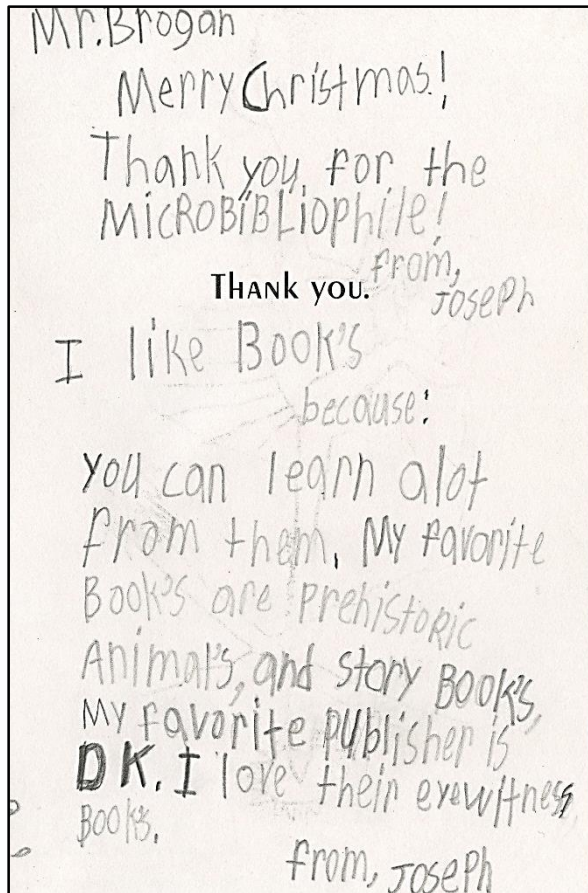 Mr. Brogan
Merry Christmas!
Thank you for the
MicRoBiBLiophile!
from,
Joseph
Thank you.
I like Book's
because:
you can learn alot
from them. My favorite
Book's are Prehistoric
Animal's, and story Book's,
My favorite publisher is
DK. I love their eyewitness
Book's.
from, Joseph